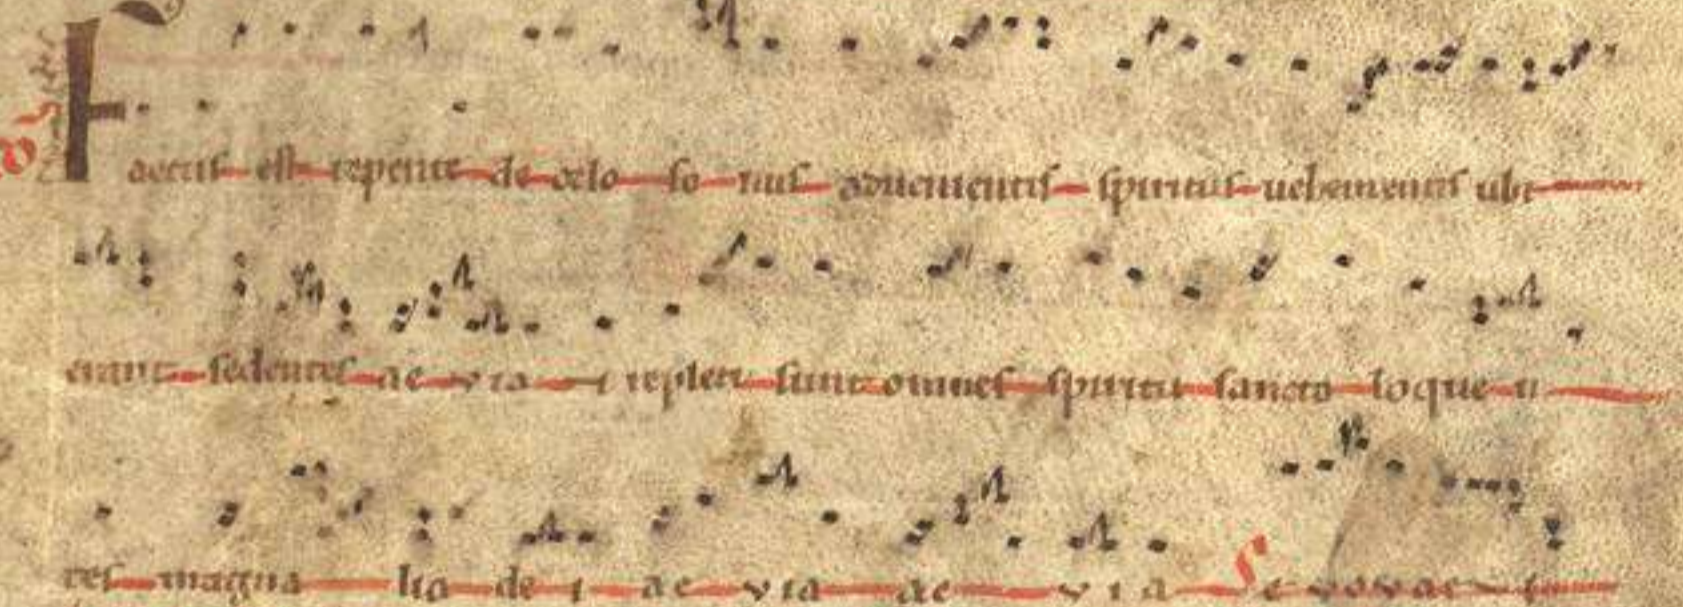 Factus est repente de celo so nus aduenientis spiritus uehementis ubi
erant sedentes ae v ia t repleti sunt omnes spiritu sancto loque n
tes magna lia de i ae v ia ae v i a